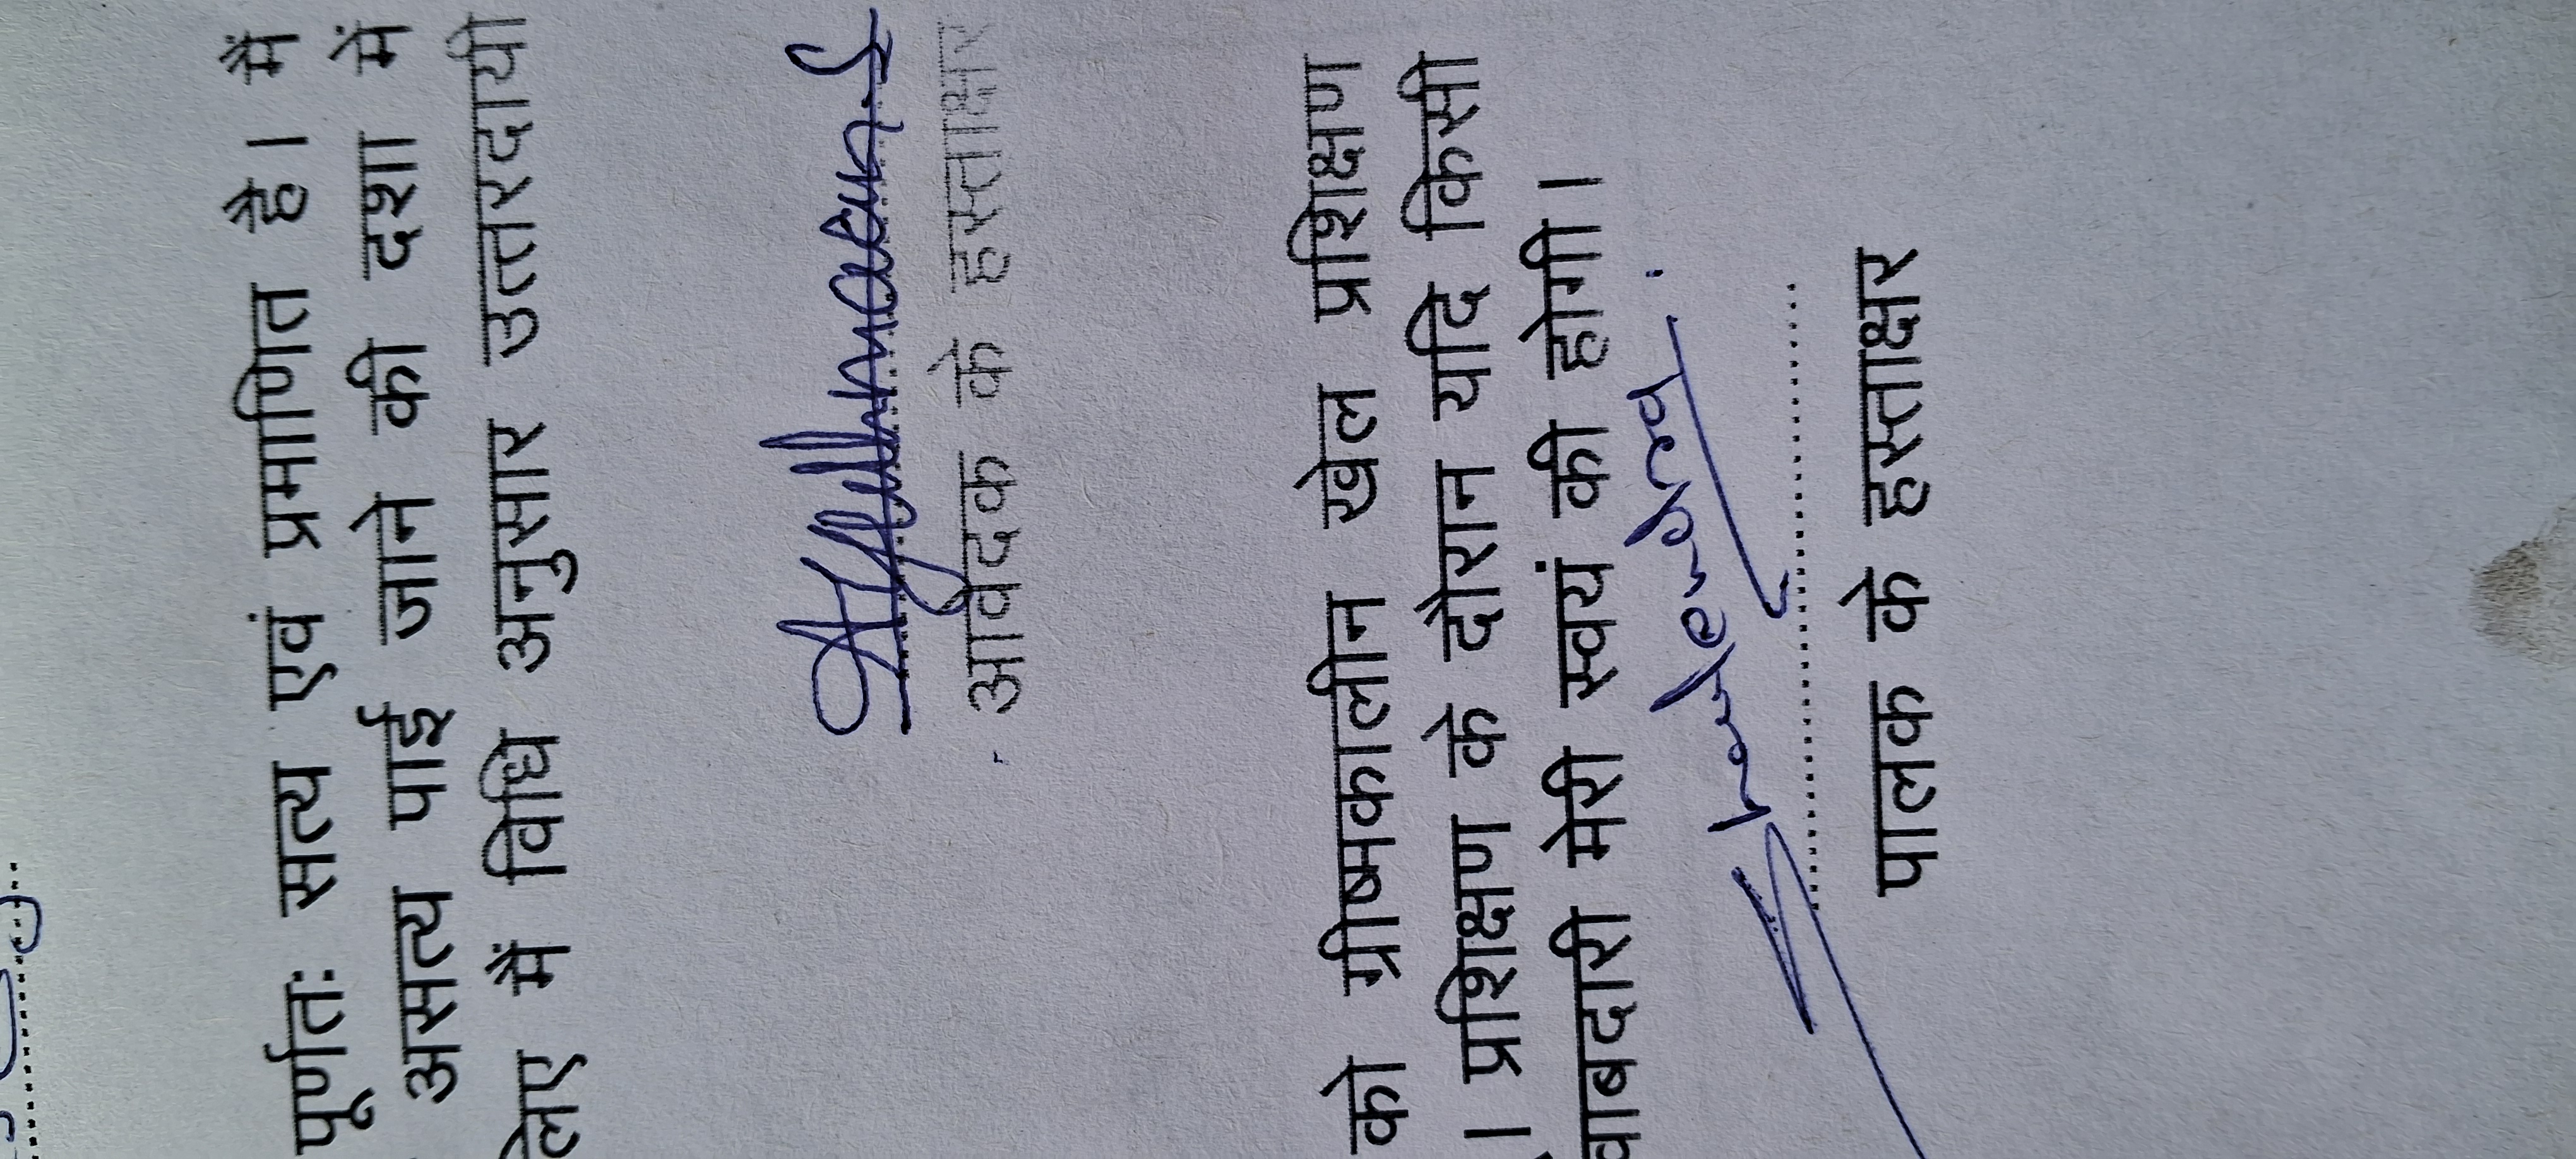 पूर्णतः सत्य एवं प्रमाणित है। मैं
असत्य पाई जाने की दशा में
लिए मैं विधि अनुसार उत्तरदायी
आवेदक के हस्ताक्षर
को ग्रीष्मकालीन खेल प्रशिक्षण
। प्रशिक्षण के दौरान यदि किसी
वाबदारी मेरी स्वयं की होगी।
पालक के हस्ताक्षर